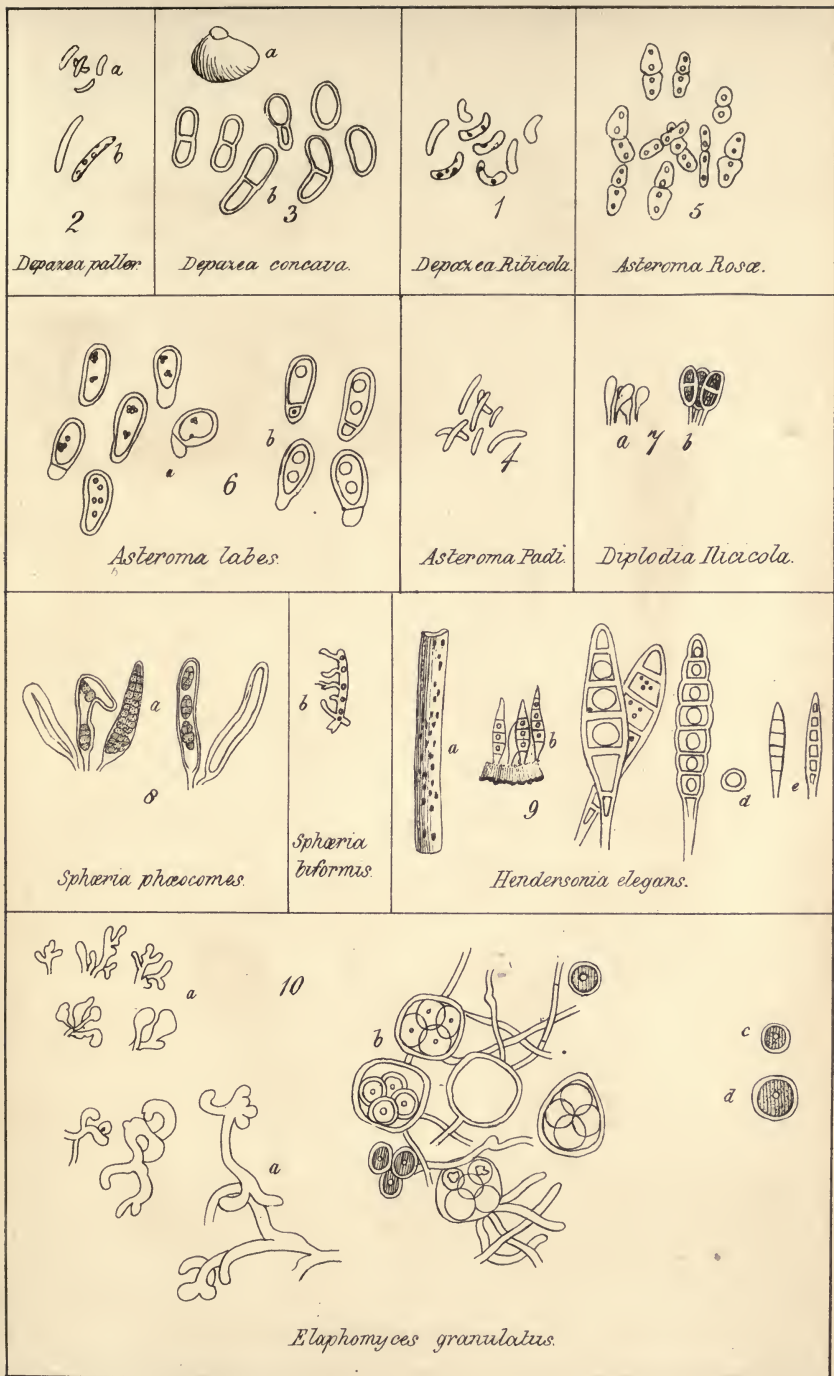 a
b
2
Depazea paller.
a
b
3
Depazea concava.
1
Depazea Ribicola.
5
Asteroma Rosæ.
a
b
6
Asteroma labes.
4
Asteroma Padi.
a 7 b
Diplodia Ilicicola.
a
8
Sphæria phæocomes.
b
Sphæria
biformis.
a
b
9
d
e
Hendensonia elegans.
a
10
a
b
c
d
Elaphomyces granulatus.